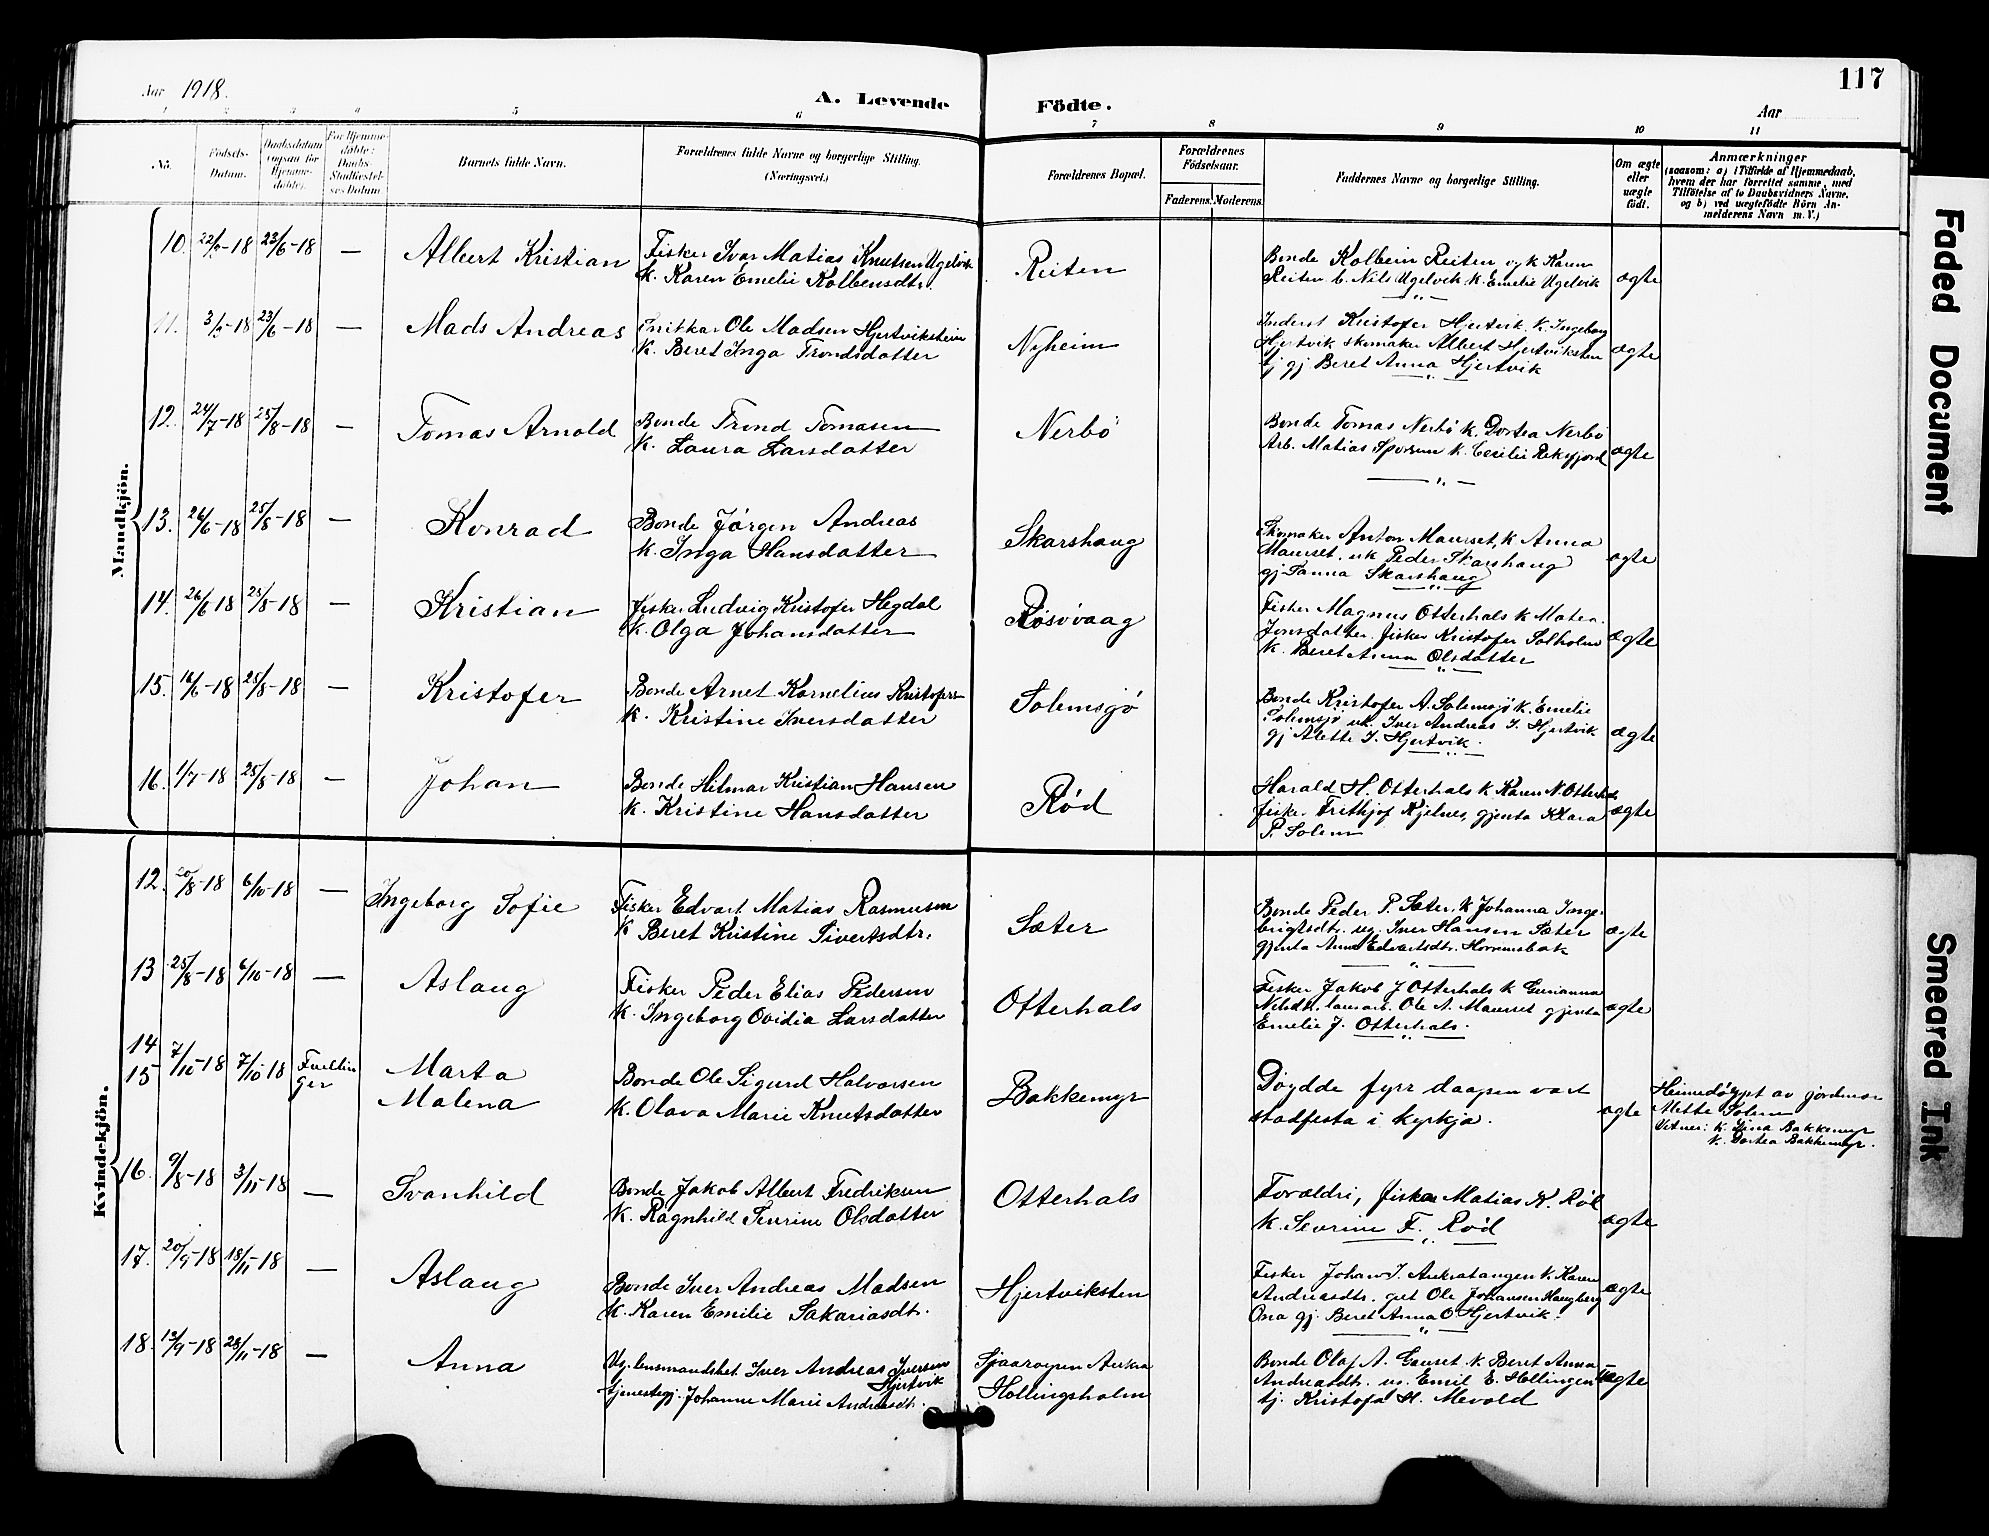 117
Aar 1918.
A. Levende Födte.
Aar
1 2 3 4 5 6 7 8 9 10 11
No.
Födsels-
Datum.
Daabsdatum
(ogsaa for
Hjemme-
döbte).
For Hjemme-
döbte:
Daabs-
Stadfæstel-
ses Datum
Barnets fulde Navn.
Forældrenes fulde Navne og borgerlige Stilling.
(Næringsvei.)
Forældrenes Bopæl.
Forældrenes
Födselsaar.
Faderens. Moderens.
Faddernes Navne og borgerlige Stilling.
Om ægte
eller
uægte
födt.
Anmærkninger
(saasom: a) i Tilfælde af Hjemmedaab,
hvem der har forrettet samme, med
Tilföielse af to Daabsvidners Navne.
og b) ved uægtefödte Börn An-
melderens Navn m. V.)
Mandkjön.
10. 23/6-18 — Albert Kristian
Fisker Ivar Matias Knutsen Ugelvik
K. Karen Emelie Kolbensdtr.
Reiten
Bonde Kolbein Reiten og k Karen
Reiten b. Nils Ugelvik K. Emelie Ugelvik
ægte
11. 3/5-18 23/6-18 — Mads Andreas
Ole Madsen Hjertvikstein
K. Beret Inga Trondsdatter
Nyheim
Inderst Kristofer Hjertvik K. Ingeborg
Hjertvik skomaker Albert Hjertviksten
tj gj Beret Anna Hjertvik
ægte
12. 24/7-18 25/8-18 — Tomas Arnold
Bonde Trond Tomasen
K. Laura Larsdatter
Nerbö
Bonde Tomas Nerbö K. Dortea Nerbö
Arb. Matias K. Cecilie
ægte
13. 26/6-18 25/8-18 — Konrad
Bonde Jørgen Andreas
K. Inga Hansdatter
Skarshaug
Skomaker Anton Maurset, K Anna
Maurset. uk Peder Skarshaug
gj. Tanna Skarshaug
ægte
14. 26/6-18 25/8-18 — Kristian
Fisker Ludvig Kristofer Hegdal
K. Olga Johansdatter
Røsövaag
Fisker Magnus Otterhals K Matea
Jonsdatter. fisker Kristofer Solholm
K. Beret Anna Olsdatter
ægte
15. 16/6-18 25/8-18 — Kristofer
Bonde Arnet Kornelius Kristofers
K. Kristine Iversdatter
Solemsjö
Bonde Kristofer A. Solemsjö K. Emelie
Solemsjö uk. Iver Andreas I. Hjertvik
gj Alette I. Hjertvik.
ægte
16. 1/7-18 25/8-18 — Johan
Bonde Hilmar Kristian Hansen
K. Kristine Hansdatter
Rød
Harald H. Otterhals K Karen N. Otterhals
fisker Frithjof Kjelnes, gjenta Klara
P. Solem
ægte
Kvindekjön.
12. 20/8-18 6/10-18 — Ingeborg Sofie
Fisker Edvart Matias Rasmusen
K Beret Kristine Sivertsdtr.
Sæter
Bonde Peder P. Sæter. K Johanna Inge-
brigtsdtr. ug. Iver Hansen Sæter
gjenta Anne Edvartsdtr. Horremsbak
ægte
13 25/8-18 6/10-18 — Aslaug
Fisker Peder Elias Pedersen
K. Ingeborg Ovidia Larsdatter
Otterhals
Fisker Jakob J Otterhals K Gurianna
Nilsdtr. Ole A. Maurset gjenta
Emelie J. Otterhals.
ægte
14
15 7/10-18 7/10 18 Tvillin
ger
Marta
Malena
Bonde Ole Sigurd Halvorsen
K. Olava Marie Knutsdatter
Bakkemyr
Döydde fyrr daapen vart
stadfesta i kyrkja.
ægte
Heimedöypt av jordmor
Mette Solem
Vitner: K. Lina Bakkemyr
K. Dortea Bakkemyr.
16. 9/8-18 3/11-18 — Svanhild
Bonde Jakob Albert Fredriksen
K. Ragnhild Severine Olsdatter
Otterhals
Forældri, fisker Matias K. Röd
K. Severine F. Rød
ægte
17. 20/9-18 18/11-18 — Aslaug
Bonde Iver Andreas Madsen
K. Karen Emilie Sakariasdt.
Hjertviksten
Fisker Johan J. K. Karen
Andreasdtr. gut Ole Johansen Haugberg
Ona gj. Beret Anna O Hjertvik.
ægte
18. 13/9-18 28/11-18 — Anna
Ug. lensmandsbet. Iver Andreas Iversen
Hjertvik
tjenestegj. Johanne Marie Andreasdt.
Hollingsholm
Bonde Olaf A. Gauset K. Beret Anna
Andreasdtr. us. Emil E. Hollingen
tj. Kristofa H. Mevold
uægte
Faded Document
Smeared Ink